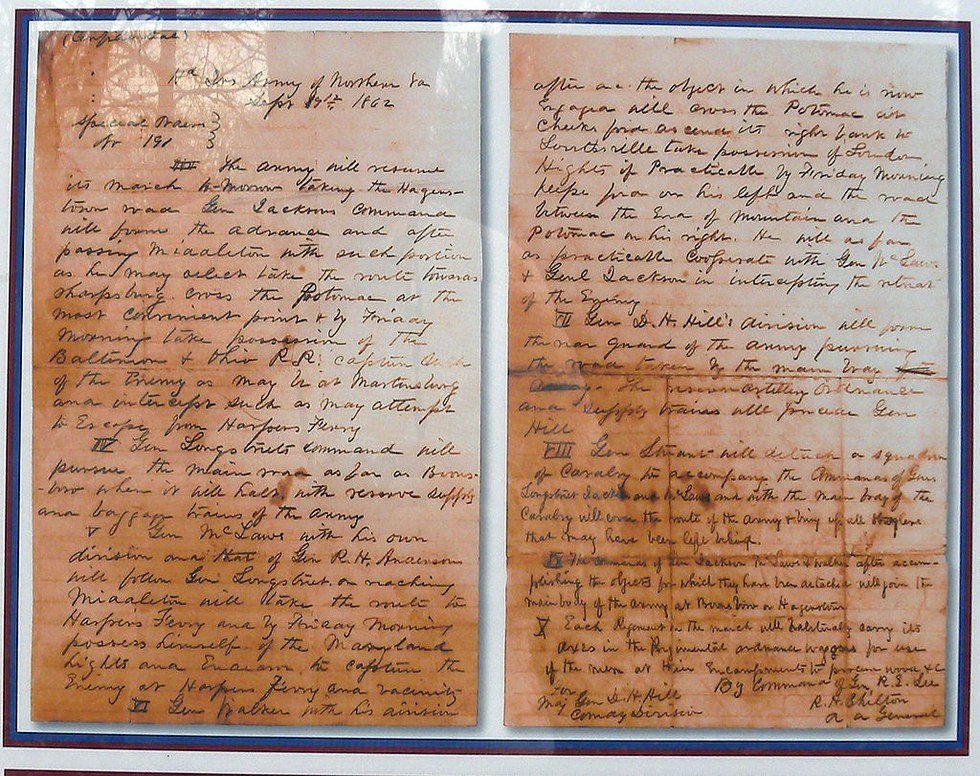 (Confidential)
Hd Qrs Army of Northern Va
Sept 9th 1862
Special Orders
No 191
III The army will resume
its march to-morrow taking the Hagers-
town road Gen Jacksons command
will form the advance and after
passing Middleton with such portion
as he may select take the route towards
Sharpsburg. cross the Potomac at the
most convenient point & by Friday
Morning take possession of the
Baltimore & Ohio R.R. capture such
of the Enemy as may be at Martinsburg
and intercept such as may attempt
to Escape from Harpers Ferry
IV Gen Longstreets command will
pursue the main road as far as Boons-
-boro where it will halt, with reserve supply
and baggage trains of the army
V Gen McLaws with his own
division and that of Gen R. H. Anderson
will follow Gen Longstreet. on reaching
Middleton will take the route to
Harpers Ferry and by Friday Morning
possess himself of the Maryland
hights and Endeavor to capture the
Enemy at Harpers Ferry and vacinity
VI Gen Walker with his division
after the object in which he is now
Engaged will cross the Potomac at
Cheeks ford ascend its right bank to
Lovettsville take possession of Loudon
Hights if Practicable by Friday Morning
Keeps ford on his left and the road
between the End of mountain and the
Potomac on his right. He will as far
as practicable Cooperate with Gen McLaws
& Genl Jackson in intercepting the retreat
of the Enemy
VII Gen D. H. Hill's division will form
the rear guard of the army pursuing
the road taken by the main body
army. The reserve artillery Ordnance
and supply trains will precede Gen
Hill
VIII Gen Stuart will detach a squadron
of Cavalry to accompany the Commands of Gens
Longstreet Jackson and McLaws and with the main body of the
Cavalry will cover the route of the Army & bring up all stragglers
that may have been left behind.
IX The commands of Gen Jackson McLaws & Walker after accom-
plishing the objects for which they have been detached will join the
main body of the army at Boonsboro or Hagerstown
X Each Regiment on the march will habitually carry its
axes in the Regimental ordnance waggons for use
of the men at their Encampments to procure wood &c
By Command of Gen R. E. Lee
R. H. Chilton
A A General
For
Maj Gen D. H. Hill
Comdg Division